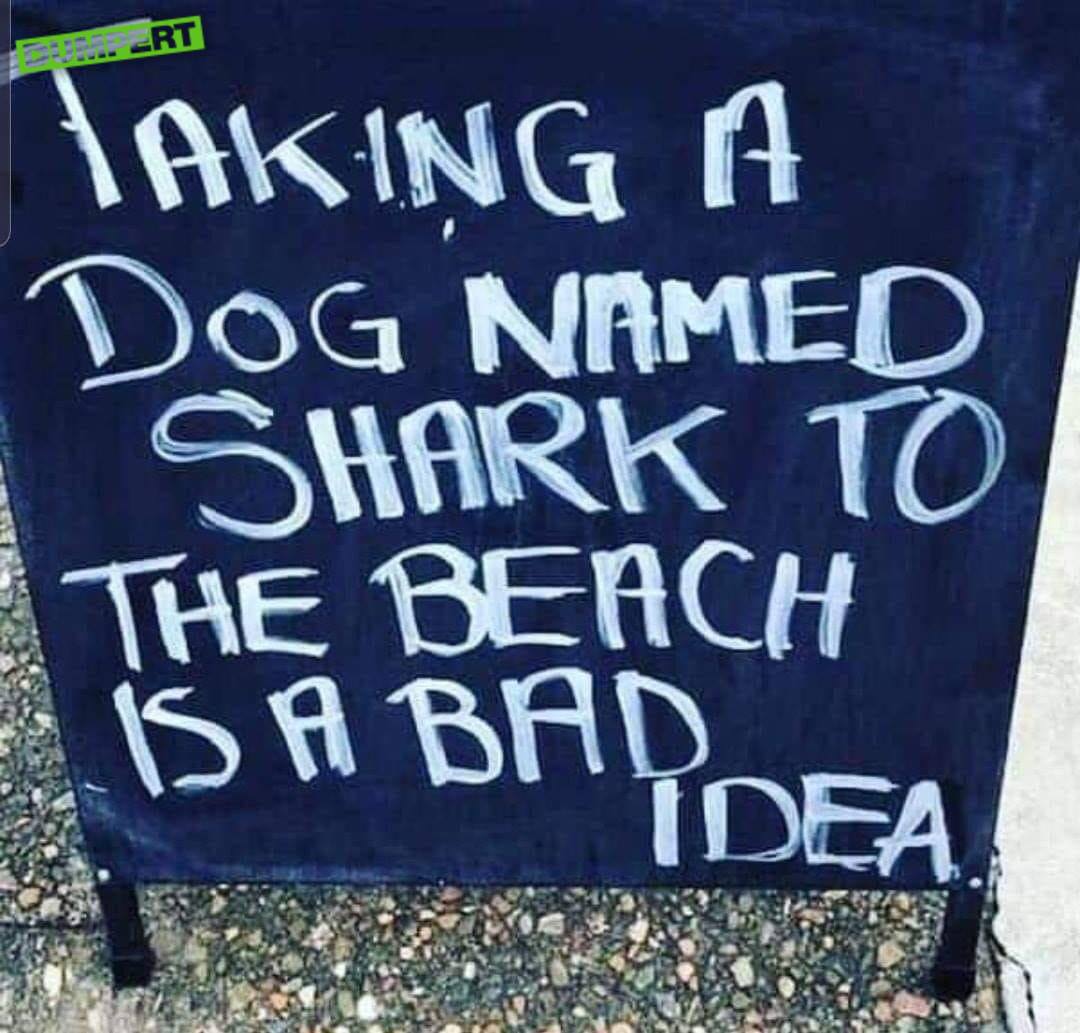 DUMPERT
TAKING A
DOG NAMED
SHARK TO
THE BEACH
IS A BAD
IDEA